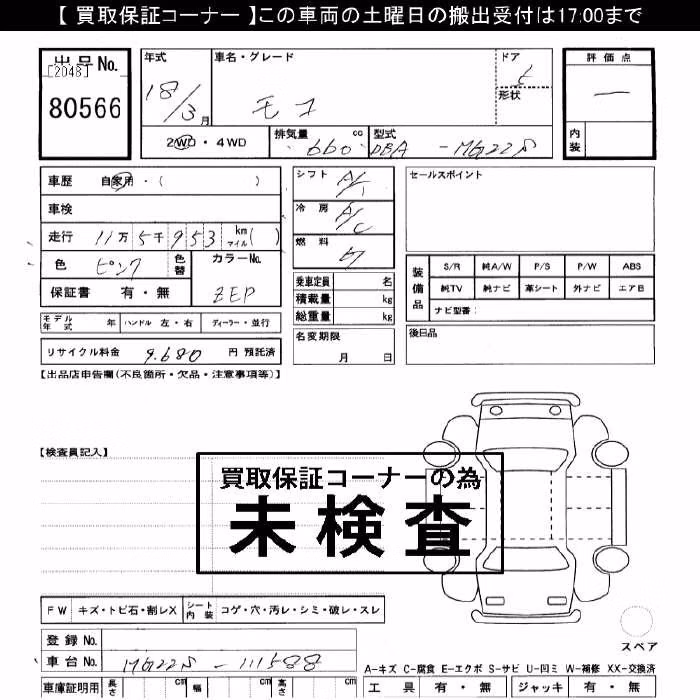 【 買取保証コーナー 】この車両の土曜日の搬出受付は17:00まで
出品No.
[2048]
80566
年式
18/3月
車名・グレード
モコ
ドア
形状
評価点
内装
2WD・4WD
排気量 cc
660
型式
DBA-MG22S
車歴 自家用・( )
車検
走行 11万5千953 km マイル( )
色 ピンク 色替
カラーNo.
ZEP
保証書 有・無
モデル年式 年 ハンドル 左・右 ディーラー・並行
リサイクル料金 9.680 円 預託済
シフト A/T
冷房 A/C
燃料
乗車定員 名
積載量 kg
総重量 kg
名変期限
月 日
セールスポイント
装備品
S/R 純A/W P/S P/W ABS
純TV 純ナビ 革シート 外ナビ エアB
ナビ型番:
後日品
【出品店申告欄(不良箇所・欠品・注意事項等)】
【検査員記入】
買取保証コーナーの為
未検査
FW キズ・トビ石・割レX シート内装 コゲ・穴・汚レ・シミ・破レ・スレ
登録No.
車台No. MG22S-111588
車庫証明用 長さ cm 幅 cm 高さ cm
スペア
A-キズ C-腐食 E-エクボ S-サビ U-凹ミ W-補修 XX-交換済
工具 有・無 ジャッキ 有・無